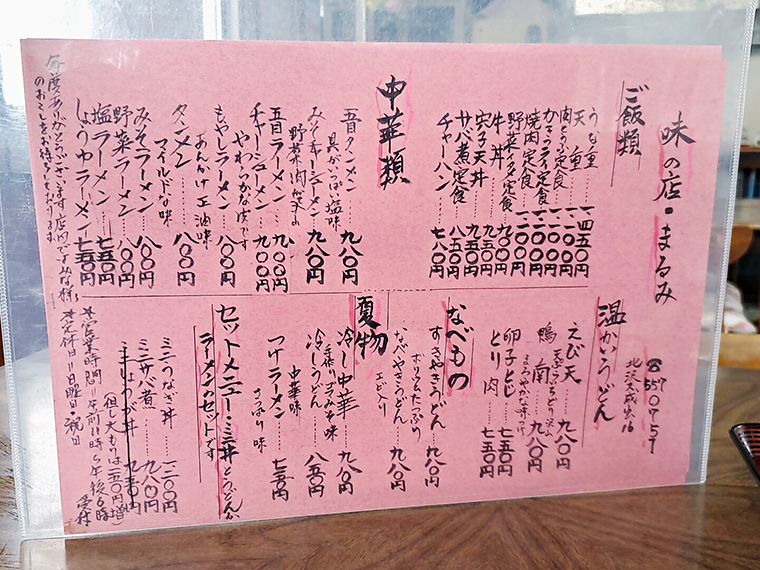 味の店・まるみ
ご飯類
うな重……一四五〇円
天重……一一〇〇円
肉とうふ定食…一一〇〇円
かきフライ定食…一一〇〇円
焼肉定食……一〇〇〇円
野菜イタメ定食…九〇〇円
牛丼……九五〇円
穴子天丼……九五〇円
サバ煮定食…八五〇円
チャーハン……七八〇円
中華類
五目タンメン……九八〇円
具がいっぱい塩味
みそチャーシューメン……九八〇円
五目ラーメン……九〇〇円
チャーシューメン……九〇〇円
やわらかな肉です
もやしラーメン……八〇〇円
あんかけ正油味
タンメン……八〇〇円
マイルドな味
みそラーメン……八〇〇円
野菜ラーメン……八〇〇円
塩ラーメン……七五〇円
しょうゆラーメン…七五〇円
毎度ありがとうございます店内でみな様
のおこしをお待ちしております。
☎557 0757
温かいうどん
えび天……九八〇円
鴨南……九八〇円
卵子とじ……七五〇円
とり肉……七五〇円
なべもの
すきやきうどん……九八〇円
なべやきうどん……九八〇円
エビ入り
夏物
冷し中華……九八〇円
手作りゴマみそ味
冷しうどん……八五〇円
中華味
つけラーメン……七五〇円
さっぱり味
セットメニュー・ミニ丼とうどんか
ラーメンのセットです
ミニうなぎ丼……一二〇〇円
ミニサバ煮……九八〇円
ミニしょうが丼……九五〇円
(但し大もりは一五〇円増)
※営業時間=午前11時〜午後6時
※定休日=日曜日・祝日